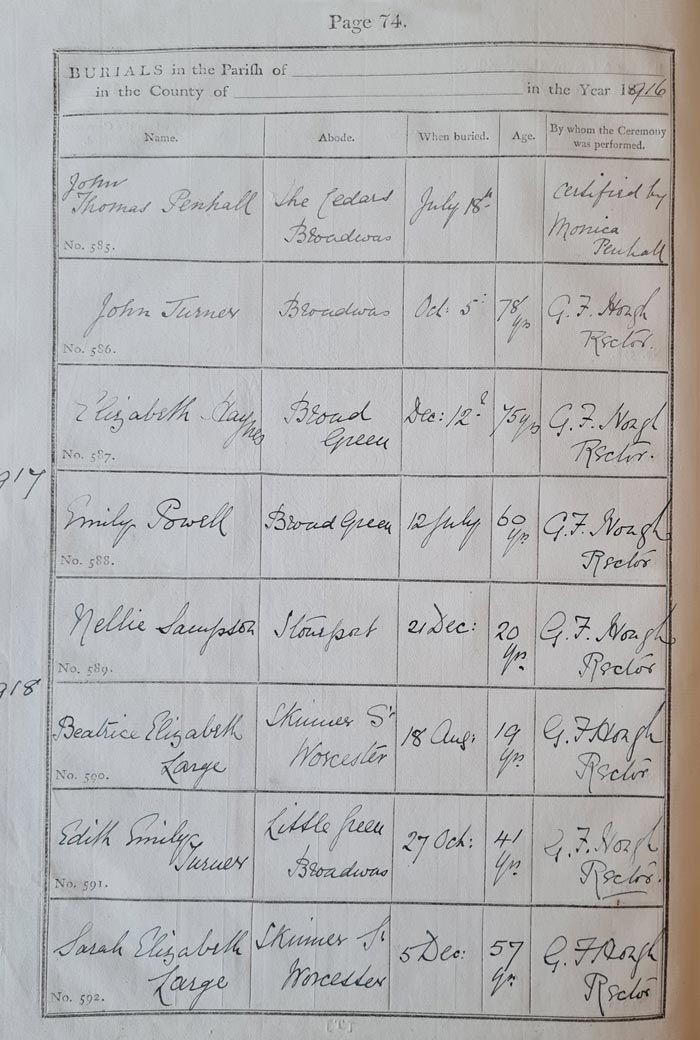 Page 74.
BURIALS in the Pariſh of
in the County of in the Year 1916
Name. Abode. When buried. Age. By whom the Ceremony was performed.
John
Thomas Penhall
No. 585.
The Cedars
Broadwas
July 18th
certified by
Monica
Penhall
John Turner
No. 586.
Broadwas
Oct: 5:
78
yrs
G. F. Hough
Rector.
Elizabeth Haynes
No. 587.
Broad
Green
Dec: 12
75 yrs
G. F. Hough
Rector.
1917
Emily Powell
No. 588.
Broad Green
12 July
60
yrs
G. F. Hough
Rector
Nellie Sampson
No. 589.
Stourport
21 Dec:
20
yrs.
G. F. Hough
Rector
1918
Beatrice Elizabeth
Large
No. 590.
Skinner St
Worcester
18 Aug:
19
yrs.
G. F. Hough
Rector
Edith Emily
Turner
No. 591.
Little Green
Broadwas
27 Oct:
41
yrs.
G. F. Hough
Rector.
Sarah Elizabeth
Large
No. 592.
Skinner St
Worcester
5 Dec:
57
yrs.
G. F. Hough
Rector
[T]